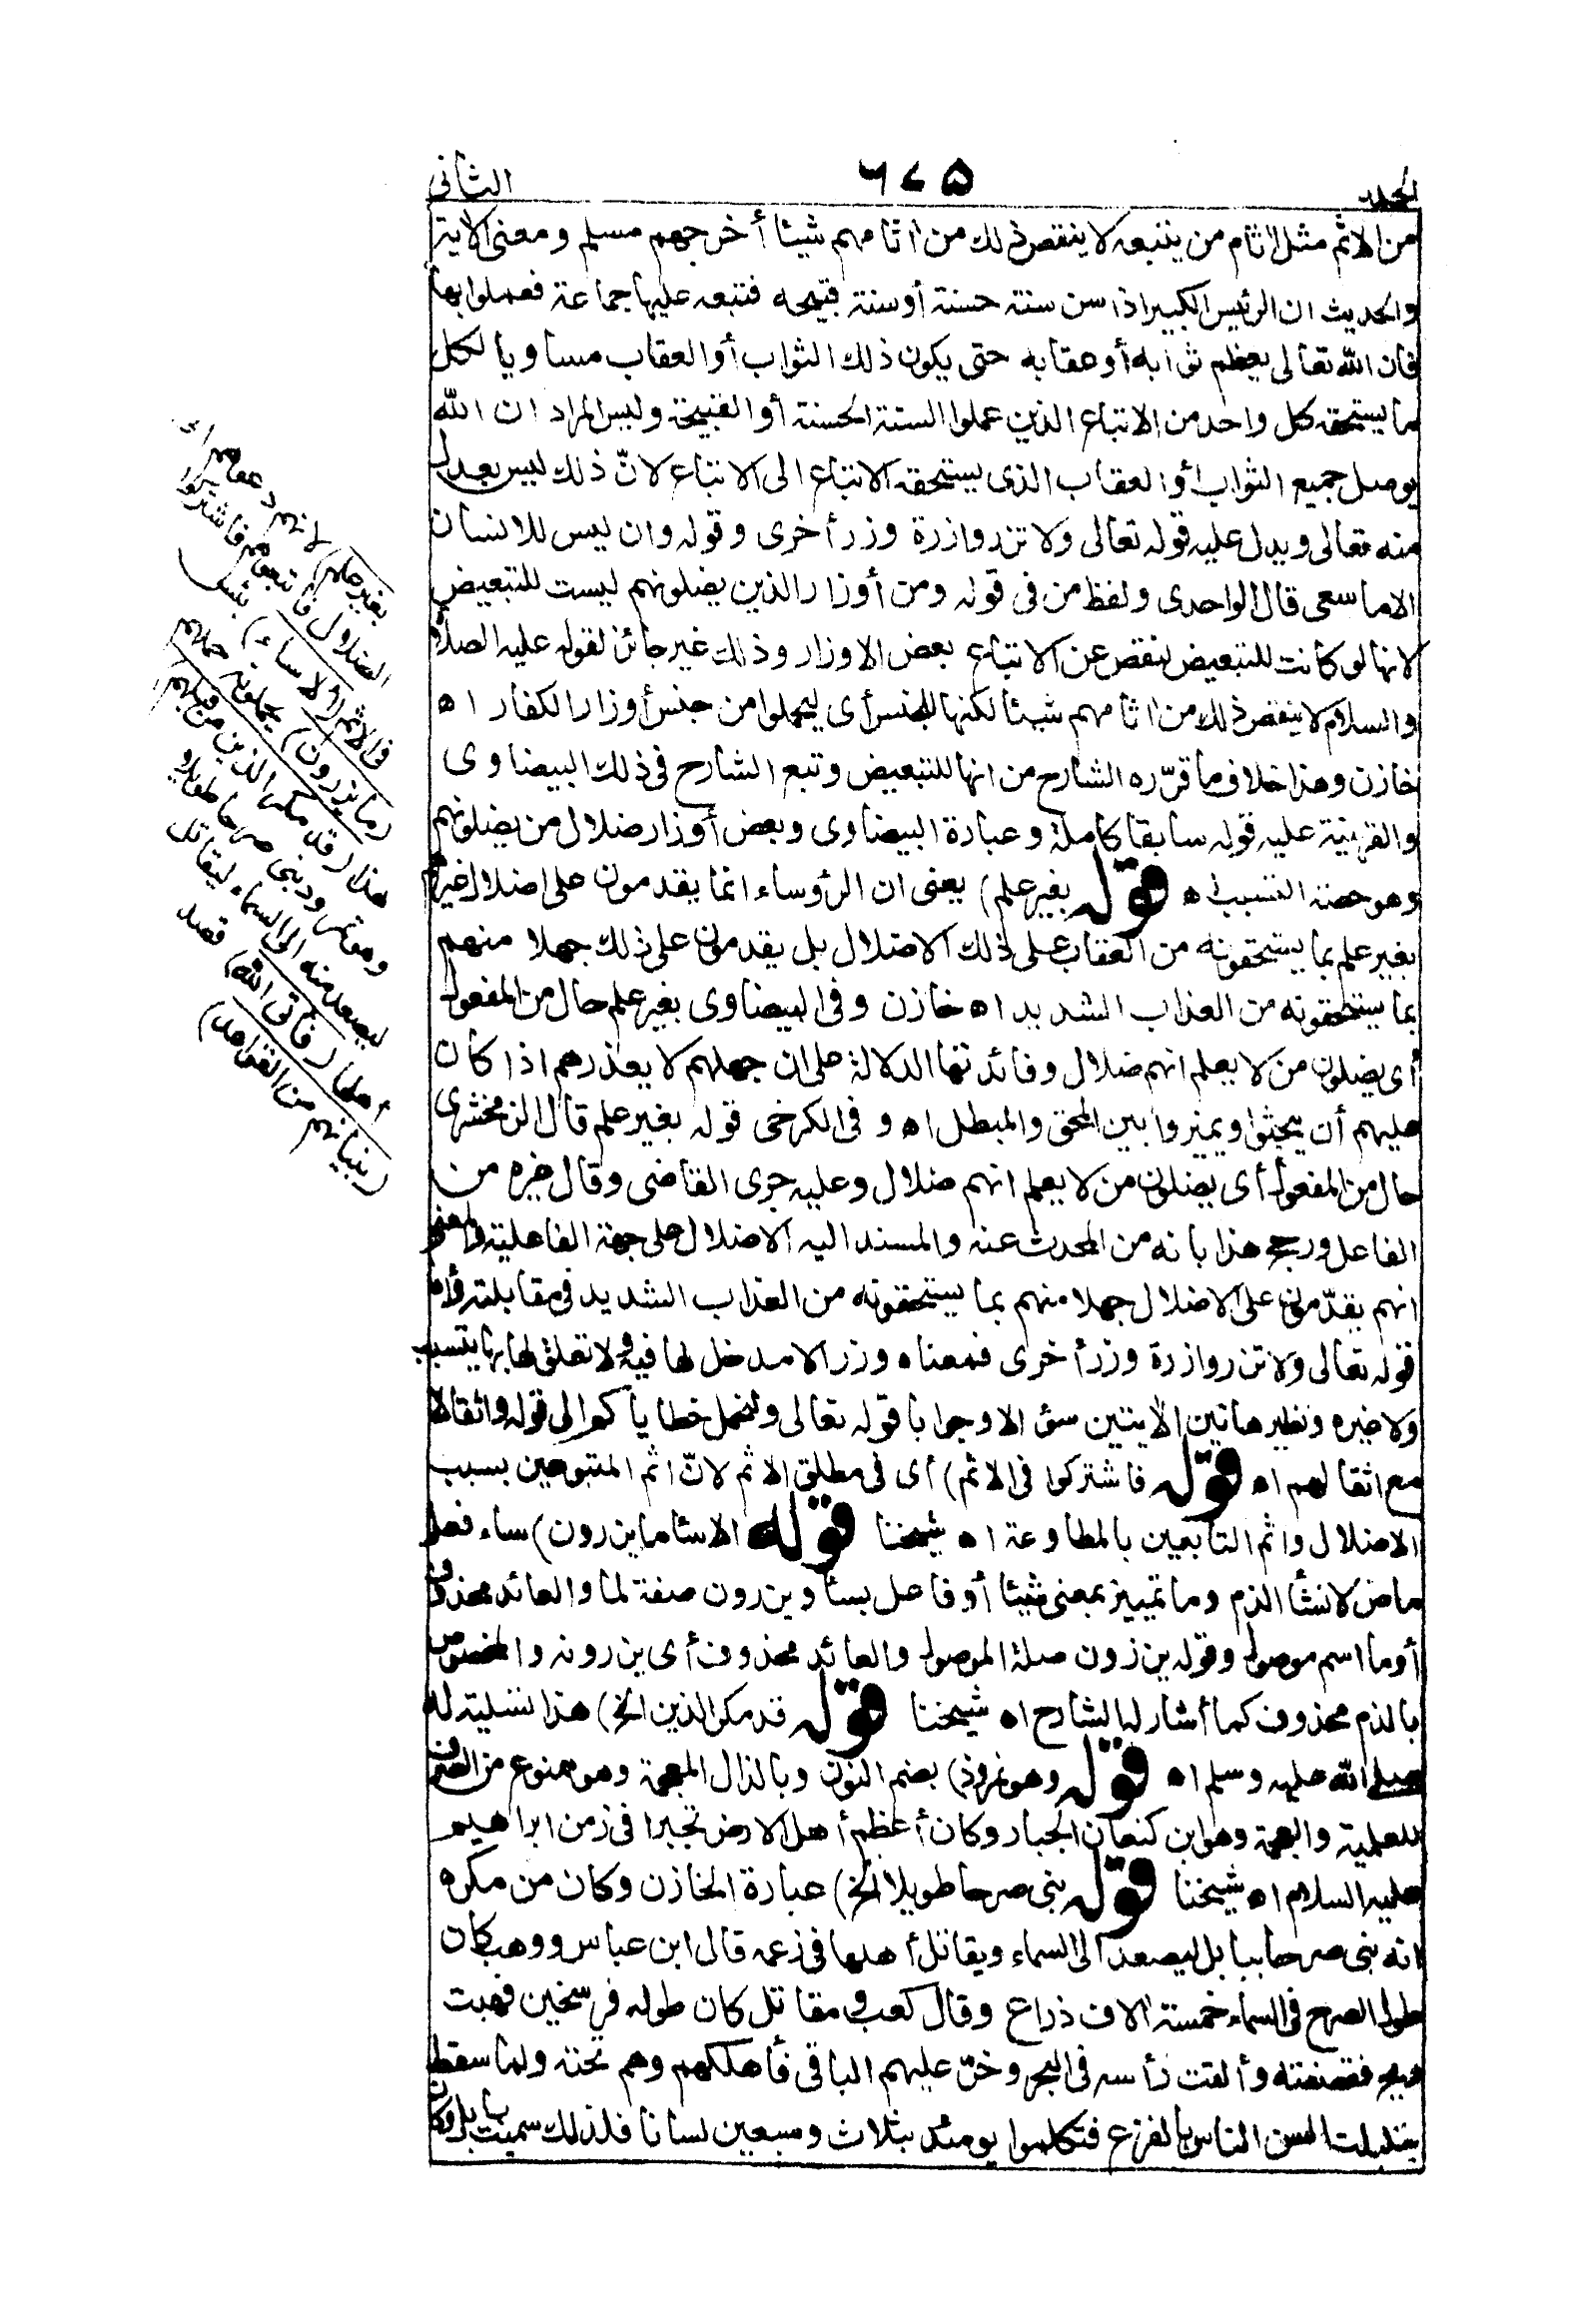 الجلد ٦٧٥ الثاني
من الاثم مثل اٰثام من يتبعه لا ينقص ذلك من اٰثامهم شيئا أخرجهم مسلم ومعنى الاٰية
والحديث ان الرئيس الكبير اذا سن سنة حسنة أو سنة قبيحه فتبعه عليها جماعة فعملوا بها
فان الله تعالى يعظم ثوابه أو عقابه حتى يكون ذلك الثواب أو العقاب مساويا لكل
ما يستحقه كل واحد من الاتباع الذين عملوا السنة الحسنة أو القبيحة وليس المراد ان الله
يوصل جميع الثواب أو العقاب الذى يستحقه الاتباع الى الاتباع لانّ ذلك ليس بعدل
منه تعالى ويدل عليه قوله تعالى ولا تزر وازرة وزر أخرى وقوله وان ليس للانسان
الا ما سعى قال الواحدى ولفظ من فى قوله ومن أوزار الذين يضلونهم ليست للتبعيض
لانها لو كانت للتبعيض لنقص عن الاتباع بعض الاوزار وذلك غير جائز لقوله عليه الصلاة
والسلام لا ينقص ذلك من اٰثامهم شيئا لكنها للجنس أى ليحملوا من جنس أوزار الكفار اه
خازن وهذا خلاف ما قرّره الشارح من انها للتبعيض وتبع الشارح فى ذلك البيضاوى
والقرينة عليه قوله سابقا كاملة وعبارة البيضاوى وبعض أوزار ضلال من يضلونهم
وهو حصة التسبب اه قوله بغير علم) يعنى ان الرؤساء انما يقدمون على اضلال غيرهم
بغير علم بما يستحقونه من العقاب على ذلك الاضلال بل يقدمون على ذلك جهلا منهم
بما يستحقونه من العذاب الشديد اه خازن وفى البيضاوى بغير علم حال من المفعول
أى يضلون من لا يعلم انهم ضلال وفائدتها الدلالة على ان جهلهم لا يعذرهم اذا كان
عليهم أن يبحثوا ويميزوا بين المحق والمبطل اه وفى الكرخى قوله بغير علم قال الزمخشرى
حال من المفعول أى يضلون من لا يعلم انهم ضلال وعليه جرى القاضى وقال غيره من
الفاعل ورجح هذا بانه من المحدث عنه والمسند اليه الاضلال على جهة الفاعلية والمعنى
انهم يقدّمون على الاضلال جهلا منهم بما يستحقونه من العذاب الشديد فى مقابلته وأما
قوله تعالى ولا تزر وازرة وزر أخرى فمعناه وزرا لا مدخل لها فيه ولا تعلق لها بها بتسبب
ولا غيره ونظير هاتين الاٰيتين سؤالا وجوابا قوله تعالى ولنحمل خطاياكم الى قوله واثقالا
مع اثقالهم اه قوله فاشتركوا فى الاثم) أى فى مطلق الاثم لانّ اثم المتبوعين بسبب
الاضلال واثم التابعين بالمطاوعة اه شيخنا قوله الا ساء ما يزرون) ساء فعل
ماض لانشأ الذم وما تمييز بمعنى شيئا أو فاعل بسأ ويزرون صفة لما والعائد محذوف
أو ما اسم موصول وقوله يزرون صلة الموصول والعائد محذوف أى يزرونه والمخصوص
بالذم محذوف كما أشار له الشارح اه شيخنا قوله قد مكر الذين الخ) هذا تسلية له
صلى الله عليه وسلم اه قوله وهو نمروذ) بضم النون وبالذال المعجمة وهو ممنوع من الصرف
للعلمية والعجمة وهو ابن كنعان الجبار وكان أعظم أهل الارض تجبرا فى زمن ابراهيم
عليه السلام اه شيخنا قوله بنى صرحا طويلا الخ) عبارة الخازن وكان من مكره
انه بنى صرحا ببابل ليصعد الى السماء ويقاتل أهلها فى زعمه قال ابن عباس ووهب كان
طول الصرح فى السماء خمسة اٰلاف ذراع وقال كعب ومقاتل كان طوله فرسخين فهبت
ريح فقصفته وألقت رأسه فى البحر وخرّ عليهم الباقى فأهلكهم وهم تحته ولما سقط
تبلبلت السن الناس بالفزع فتكلموا يومئذ بثلاث وسبعين لسانا فلذلك سميت بابل وكان
بغير علم) لانهم دعوهم الى
الضلال فاتبعوهم فاشتركوا
فى الاثم (الا ساء) بئس
(ما يزرون) يحملونه حملهم
هذا (قد مكر الذين من قبلهم)
وهو نمروذ بنى صرحا طويلا
ليصعد منه الى السماء ليقاتل
أهلها (فأتى الله) قصد
(بنيانهم من القواعد)